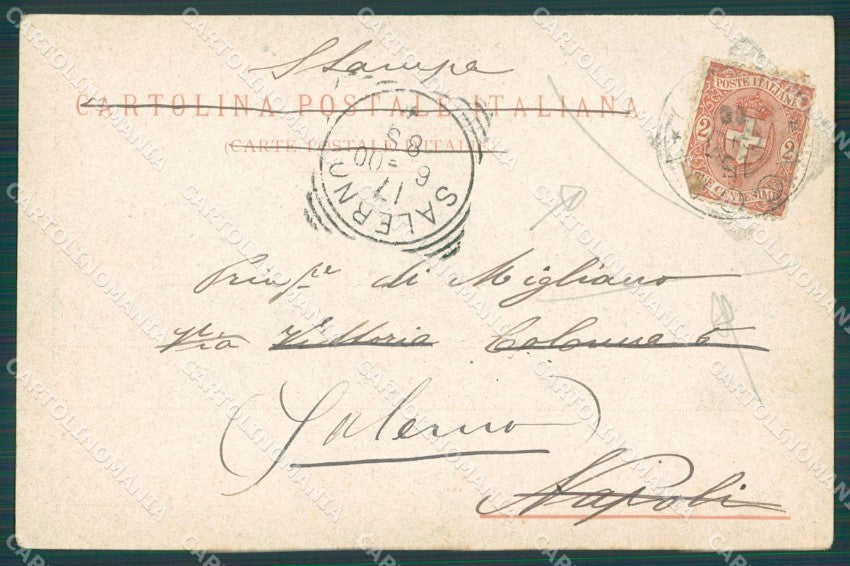 Stampe
CARTOLINA POSTALE ITALIANA
(CARTE POSTALE D'ITALIE)
POSTE ITALIANE
2 2
DUE CENTESIMI
SALERNO
17
6 - 00
8 S
di Migliano
Via Vittoria Colonna 6
Salerno
Napoli
CARTOLINOMANIA